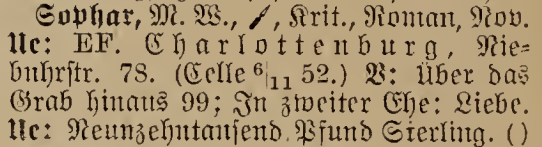 Sophar, M. W., /, Krit., Roman, Nov.
Ue: EF. Charlottenburg, Nie-
buhrstr. 78. (Celle 6/11 52.) W: Über das
Grab hinaus 99; In zweiter Ehe: Liebe.
Ue: Neunzehntausend Pfund Sterling. ()